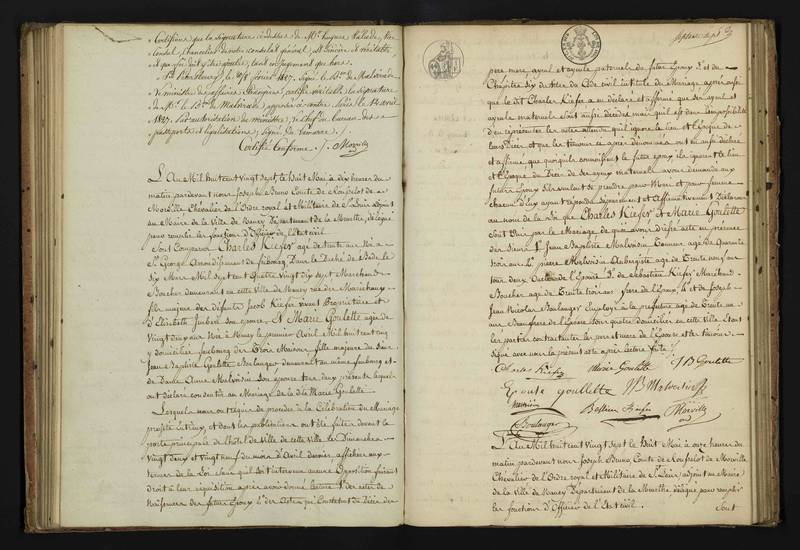 Certifions que la signature ci-dessus de Mr. hugues Vallade, Vice
Consul, Chancelier de notre consulat général, est sincère et véritable
et que foi doit y être ajoutée, tant en jugement que hors.
le 8 février 1827. Signé le Bon de Malvirade
le ministre des affaires Etrangères, certifie véritable la signature
de Mr. le Bon de Malvirade apposée ci-contre. Paris le 14 avril
1827. Par autorisation du ministre, le chef du bureau des
passeports et légalisations, Signé de Lamarre ./.
Certifié Conforme ./. Morville
L'An Mil huit cent vingt sept, le huit Mai à dix heures du
matin pardevant nous Joseph Bruno Comte de Rousselot de
Morville, Chevalier de l'Ordre royal et Militaire de St Louis adjoint
au Maire de la Ville de Nancy Département de la Meurthe, délégué
pour remplir les fonctions d'Officier de l'Etat civil.
Sont Comparus Charles Kiefer âgé de trente ans Né à
St George Arrondissement de fribourg Dans le Duché de Bade le
six Mars Mil sept cent Quatre Vingt dix sept Marchand
Boucher demeurant en cette Ville de Nancy rue des Maréchaux
fils majeur des défunts Jacob Kiefer vivant Propriétaire et
d'Elisabeth son épouse, Et Marie Goulette âgée de
Vingt deux ans Née à Nancy le premier Avril Mil huit cent cinq
y domiciliée faubourg des Trois Maisons, fille majeure du Sieur
Jean Baptiste Goulette Boulanger demeurant au même faubourg et
de Dame Anne Malvoisin Son épouse tous deux présents lesquels
ont déclaré consentir au Mariage de la dite Marie Goulette.
Lesquels nous ont requis de procéder à la Célébration du Mariage
projeté entr'eux, et dont les publications ont été faites devant la
porte principale de l'hôtel de Ville de cette ville les Dimanches
Vingt deux et vingt neuf du mois d'Avril dernier affichées aux
termes de la Loi sans qu'il soit intervenu aucune Opposition faisant
droit à leur réquisition après avoir donné lecture 1° des actes de
Naissances des futurs Epoux 2° des Actes qui Constatent les Décès des
père mère, ayeul et ayeule paternels du futur Epoux 3° et du
Chapitre six du titre du Code civil intitulé du Mariage après aussi
que le dit Charles Kiefer a déclaré et affirmé que ses ayeul et
ayeule maternels sont aussi décédés mais qu'il est dans l'impossibilité
d'en représenter les actes attendu qu'il ignore le lieu et l'époque de
leurs Décès et que les témoins ci après dénommés ont aussi déclaré
et affirmé que quoiqu'ils connaissent le futur époux ils ignorent le lieu
et l'époque du Décès de ses ayeux maternels avons demandé aux
futurs Epoux s'ils veulent se prendre pour Mari et pour femme
chacun d'eux ayant répondu séparément et Affirmativement Déclarons
au nom de la loi que Charles Kiefer et Marie Goulette
sont Unis par le Mariage de quoi avons dressé acte en présence
des Sieurs 1° Jean Baptiste Malvoisin Tanneur âgé de Quarante
trois ans 2° pierre Malvoisin Aubergiste âgé de Trente neuf ans
tous deux Oncles de l'Epouse 3° de Sébastien Kiefer Marchand
Boucher âgé de Trente trois ans frère de l'Epoux 4° et de Joseph
Jean Nicolas Boulanger Employé à la préfecture âgé de Trente un
ans Beaufrère de l'Epouse tous quatre domiciliés en cette Ville. Et ont
les parties contractantes les père et mère de l'Epouse et les témoins
Signé avec nous le présent acte après lecture faite ./.
Charles Kiefer Marie Goulette JB Goulette
Epouse Goullette JB Malvoisin
Bastian Kiefer Morville
Boulanger
L'An Mil huit cent vingt sept le huit Mai à onze heures du
matin pardevant nous Joseph Bruno Comte de Rousselot de Morville
Chevalier de l'Ordre royal et Militaire de St Louis, adjoint au Maire
de la Ville de Nancy Département de la Meurthe délégué pour remplir
les fonctions d'Officier de l'Etat civil.
Sont